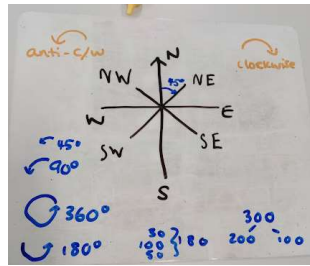 anti-c/w
clockwise
N
NW
45°
NE
W
E
SW
SE
S
45°
90°
360°
180°
30
100
50
180
300
200
100